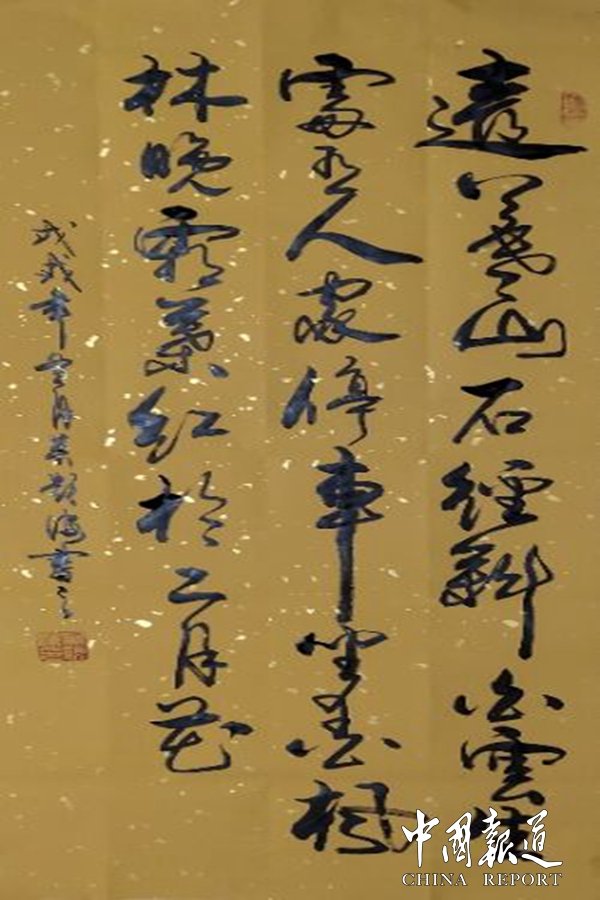 遠上寒山石經斜白雲生
處有人家停車坐愛楓
林晚霜葉紅於二月花
戊戌年月海書
中國報道
CHINA REPORT